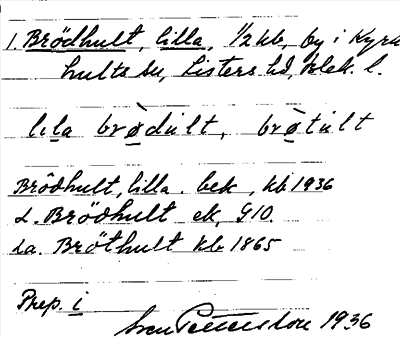 1. Brödhult, lilla, 1/2 kb, by i Kyrk
hults sn, Listers hd, Blek. l.
lila brødúlt, brøtúlt
Brödhult, lilla. bek, kb 1936
L. Brödhult ek, G10.
La. Bröthult kb 1865
Prep. i
Sven Petterson 1936